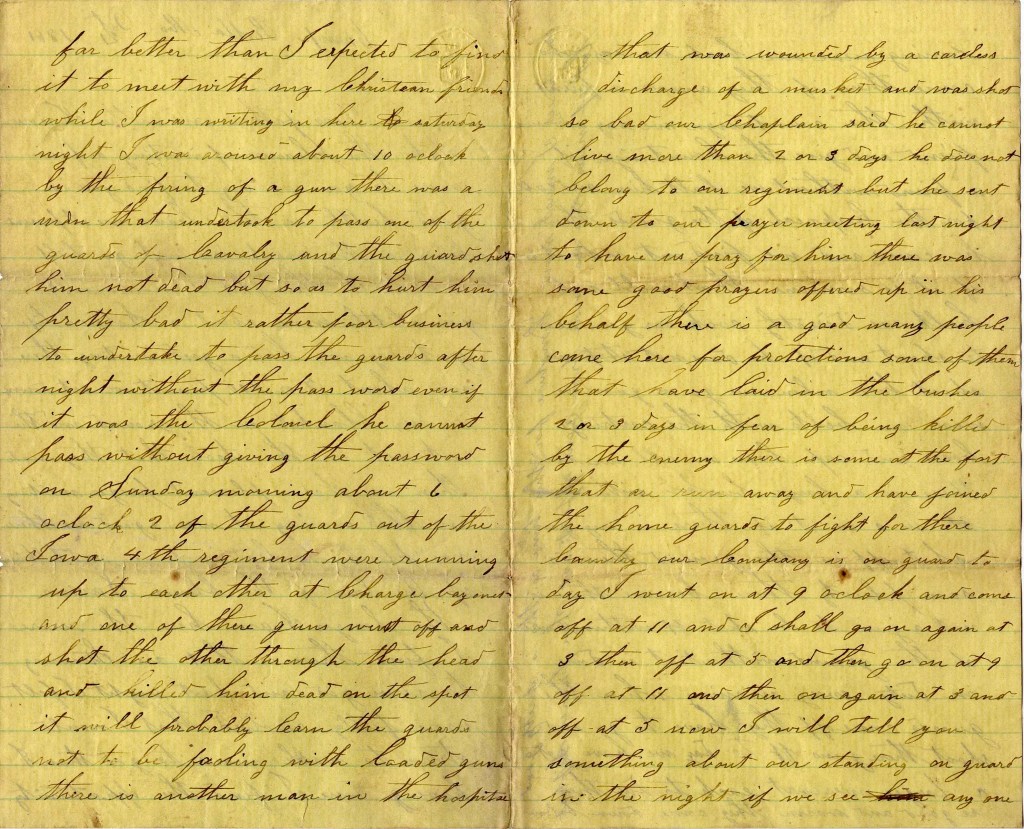 far better than I expected to find
it to meet with my Christean friends
while I was writing in here to saturday
night I was aroused about 10 oclock
by the firing of a gun there was a
man that undertook to pass one of the
guards of Cavalry and the guard shot
him not dead but so as to hurt him
pretty bad it rather poor business
to undertake to pass the guards after
night without the pass word even if
it was the Colonel he cannot
pass without giving the password
on Sunday morning about 6
oclock 2 of the guards out of the
Iowa 4th regiment were running
up to each other at Charge bayonet
and one of there guns went off and
shot the other through the head
and killed him dead on the spot
it will probably learn the guards
not to be fooling with loaded guns
there is another man in the hospital
that was wounded by a careless
discharge of a musket and was shot
so bad our Chaplain said he cannot
live more than 2 or 3 days he does not
belong to our regiment but he sent
down to our prayer meeting last night
to have us pray for him there was
some good prayers offered up in his
behalf there is a good many people
come here for protections some of them
that have laid in the bushes
2 or 3 days in fear of being killed
by the enemy there is some at the fort
that are run away and have joined
the home guards to fight for there
Country our Company is on guard to
day I went on at 9 oclock and come
off at 11 and I shall go on again at
3 then off at 5 and then go on at 9
off at 11 and then on again at 3 and
off at 5 now I will tell you
something about our standing on guard
in the night if we see him any one